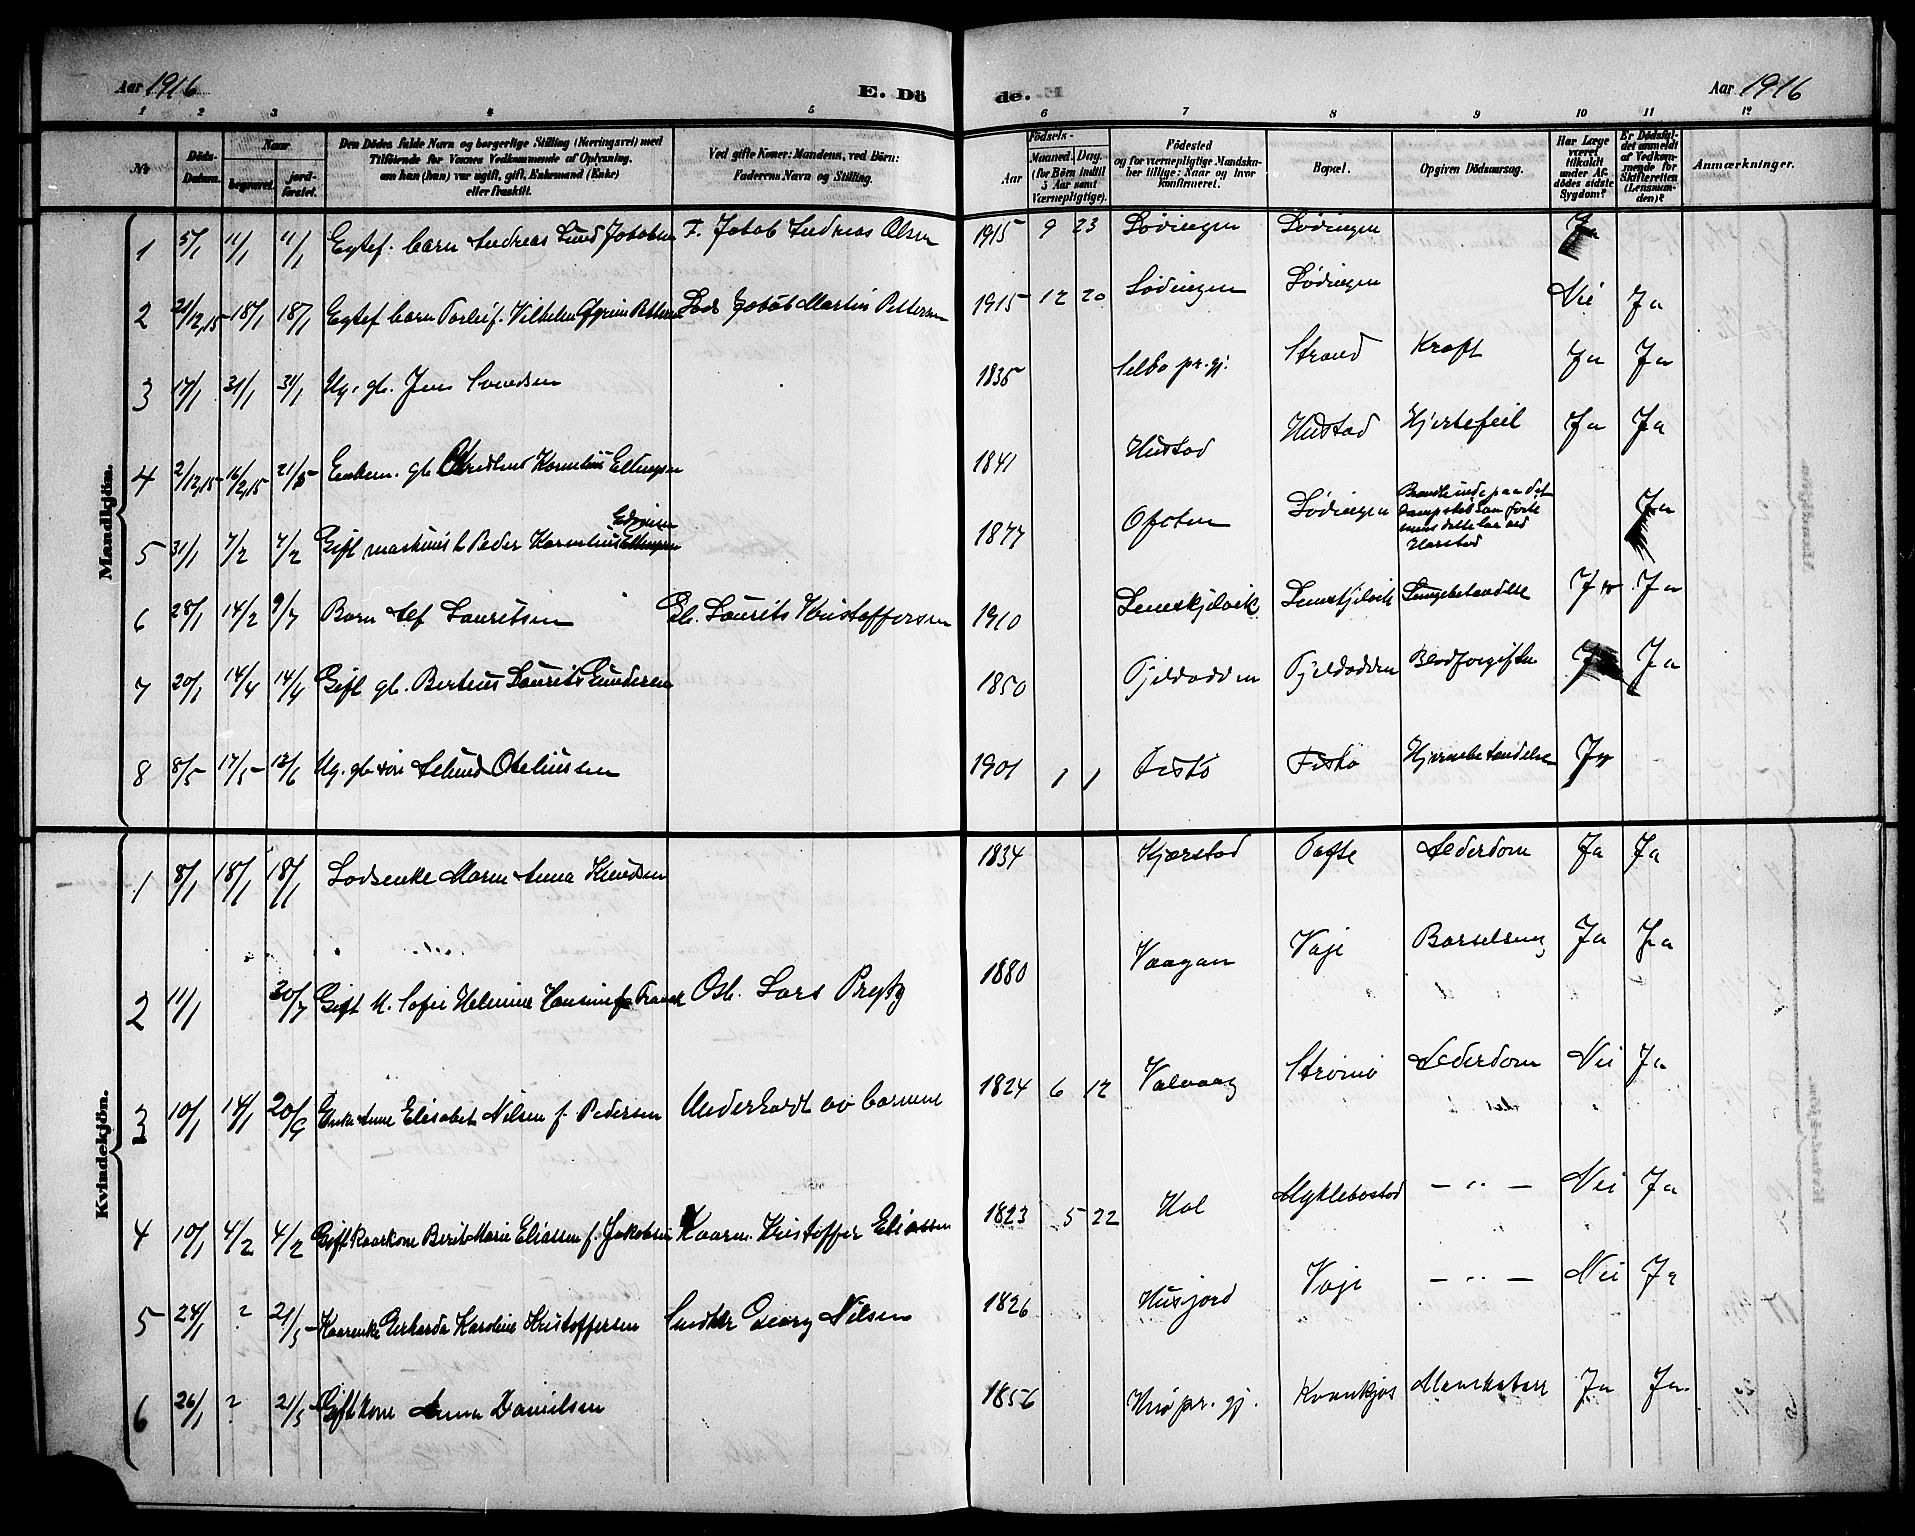 Aar 1916 E. Dö de. Aar 1916
1 2 3 4 5 6 7 8 9 10 11 12
No. Döds-Datum. Naar begravet. jordfæstet. Den Dödes fulde Navn og borgerlige Stilling (Næringsvei) med Tilföiende for Voxnes Vedkommende af Oplysning, om han (hun) var ugift, gift, Enkemand (Enke) eller fraskilt. Ved gifte Koner: Mandens, ved Börn: Faderens Navn og Stilling. Födsels- Aar Maaned. Dag. (for Börn indtil 5 Aar samt Værnepligtige). Födested og for værnepligtige Mandskaber tillige: Naar og hvor konfirmeret. Bopæl. Opgiven Dödsaarsag. Har Læge været tilkaldt under Afdödes sidste Sygdom? Er Dödsfaldet anmeldt af Vedkommende for Skifteretten (Lensmanden)? Anmærkninger.
Mandkjön.
1 5/1 11/1 11/1 Egtef. barn Andreas Lund Jakobsen F. Jakob Andreas Olsen 1915 9 23 Lødingen Lødingen Ja
2 21/12,15 18/1 18/1 Egtef barn Torleif Vilhelm Pettersen Lods Jakob Martin Pettersen 1915 12 20 Lødingen Lødingen Nei Ja
3 17/1 31/1 31/1 Ug. gb. Jens Svendsen 1835 Selbo pr.gj. Strand Kræft Ja Ja
4 2/12,15 16/2,15 21/5 Enkem. gb. Kornelius Ellingsen 1841 Hustad Hustad Hjertefeil Ja Ja
5 31/1 7/2 7/2 Gift maskinist Peder Kornelius Edvin Ellingsen 1877 Ofoten Lødingen Brændte inde paa det dampskib han førte mens dette laa ved Harstad Ja
6 28/1 14/2 9/7 Barn Alf Lauritsen Gb. Laurits Kristoffersen 1910 Leneskjelvik Leneskjelvik Lungebetændelse Ja Ja
7 20/1 14/4 14/4 Gift gb. Bertius Laurits Gundersen 1850 Tjeldodden Tjeldodden Blodforgiftn Ja Ja
8 8/5 17/5 13/6 Ug. gb. søn Amund Oteliussen 1901 1 1 Fiskø Fiskø Hjernebetændelse Ja
Kvindekjön.
1 8/1 18/1 18/1 Lodsenke Maren Anna Knudsen 1834 Kjærstad Tofte Alderdom Ja Ja
2 11/1 30/7 Gift k. Sofie Helmine Hansine f. Os. Lars Presty 1880 Vaagan Vaje Barselseng Ja Ja
3 10/1 14/1 20/9 Enke Anne Elisabet Nilsen f. Pedersen Underholdt av barnene 1824 6 12 Valvaag Strømø Alderdom Nei Ja
4 10/1 4/2 4/2 Gift kaarkone Berit Marie Eliassen f. Jakobsen Kaarm. Kristoffer Eliassen 1823 5 22 Hol Myklebostad — „ — Nei Ja
5 24/1 ? 21/5 Kaarenke Gerharda Karoline Kristoffersen Georg Nilsen 1826 Husjord Vaje — „ — Nei Ja
6 26/1 ? 21/5 Gift kone Anna Danielsen 1856 pr. gj. Kvankjos Ja Ja.